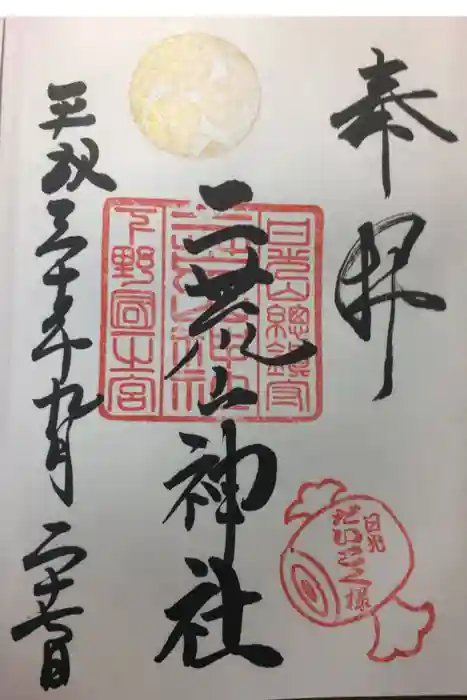 奉拝
日光山總鎮守
二荒山神社
下野國一之宮
二荒山神社
平成三十年九月二十七日
日光
だいこく様